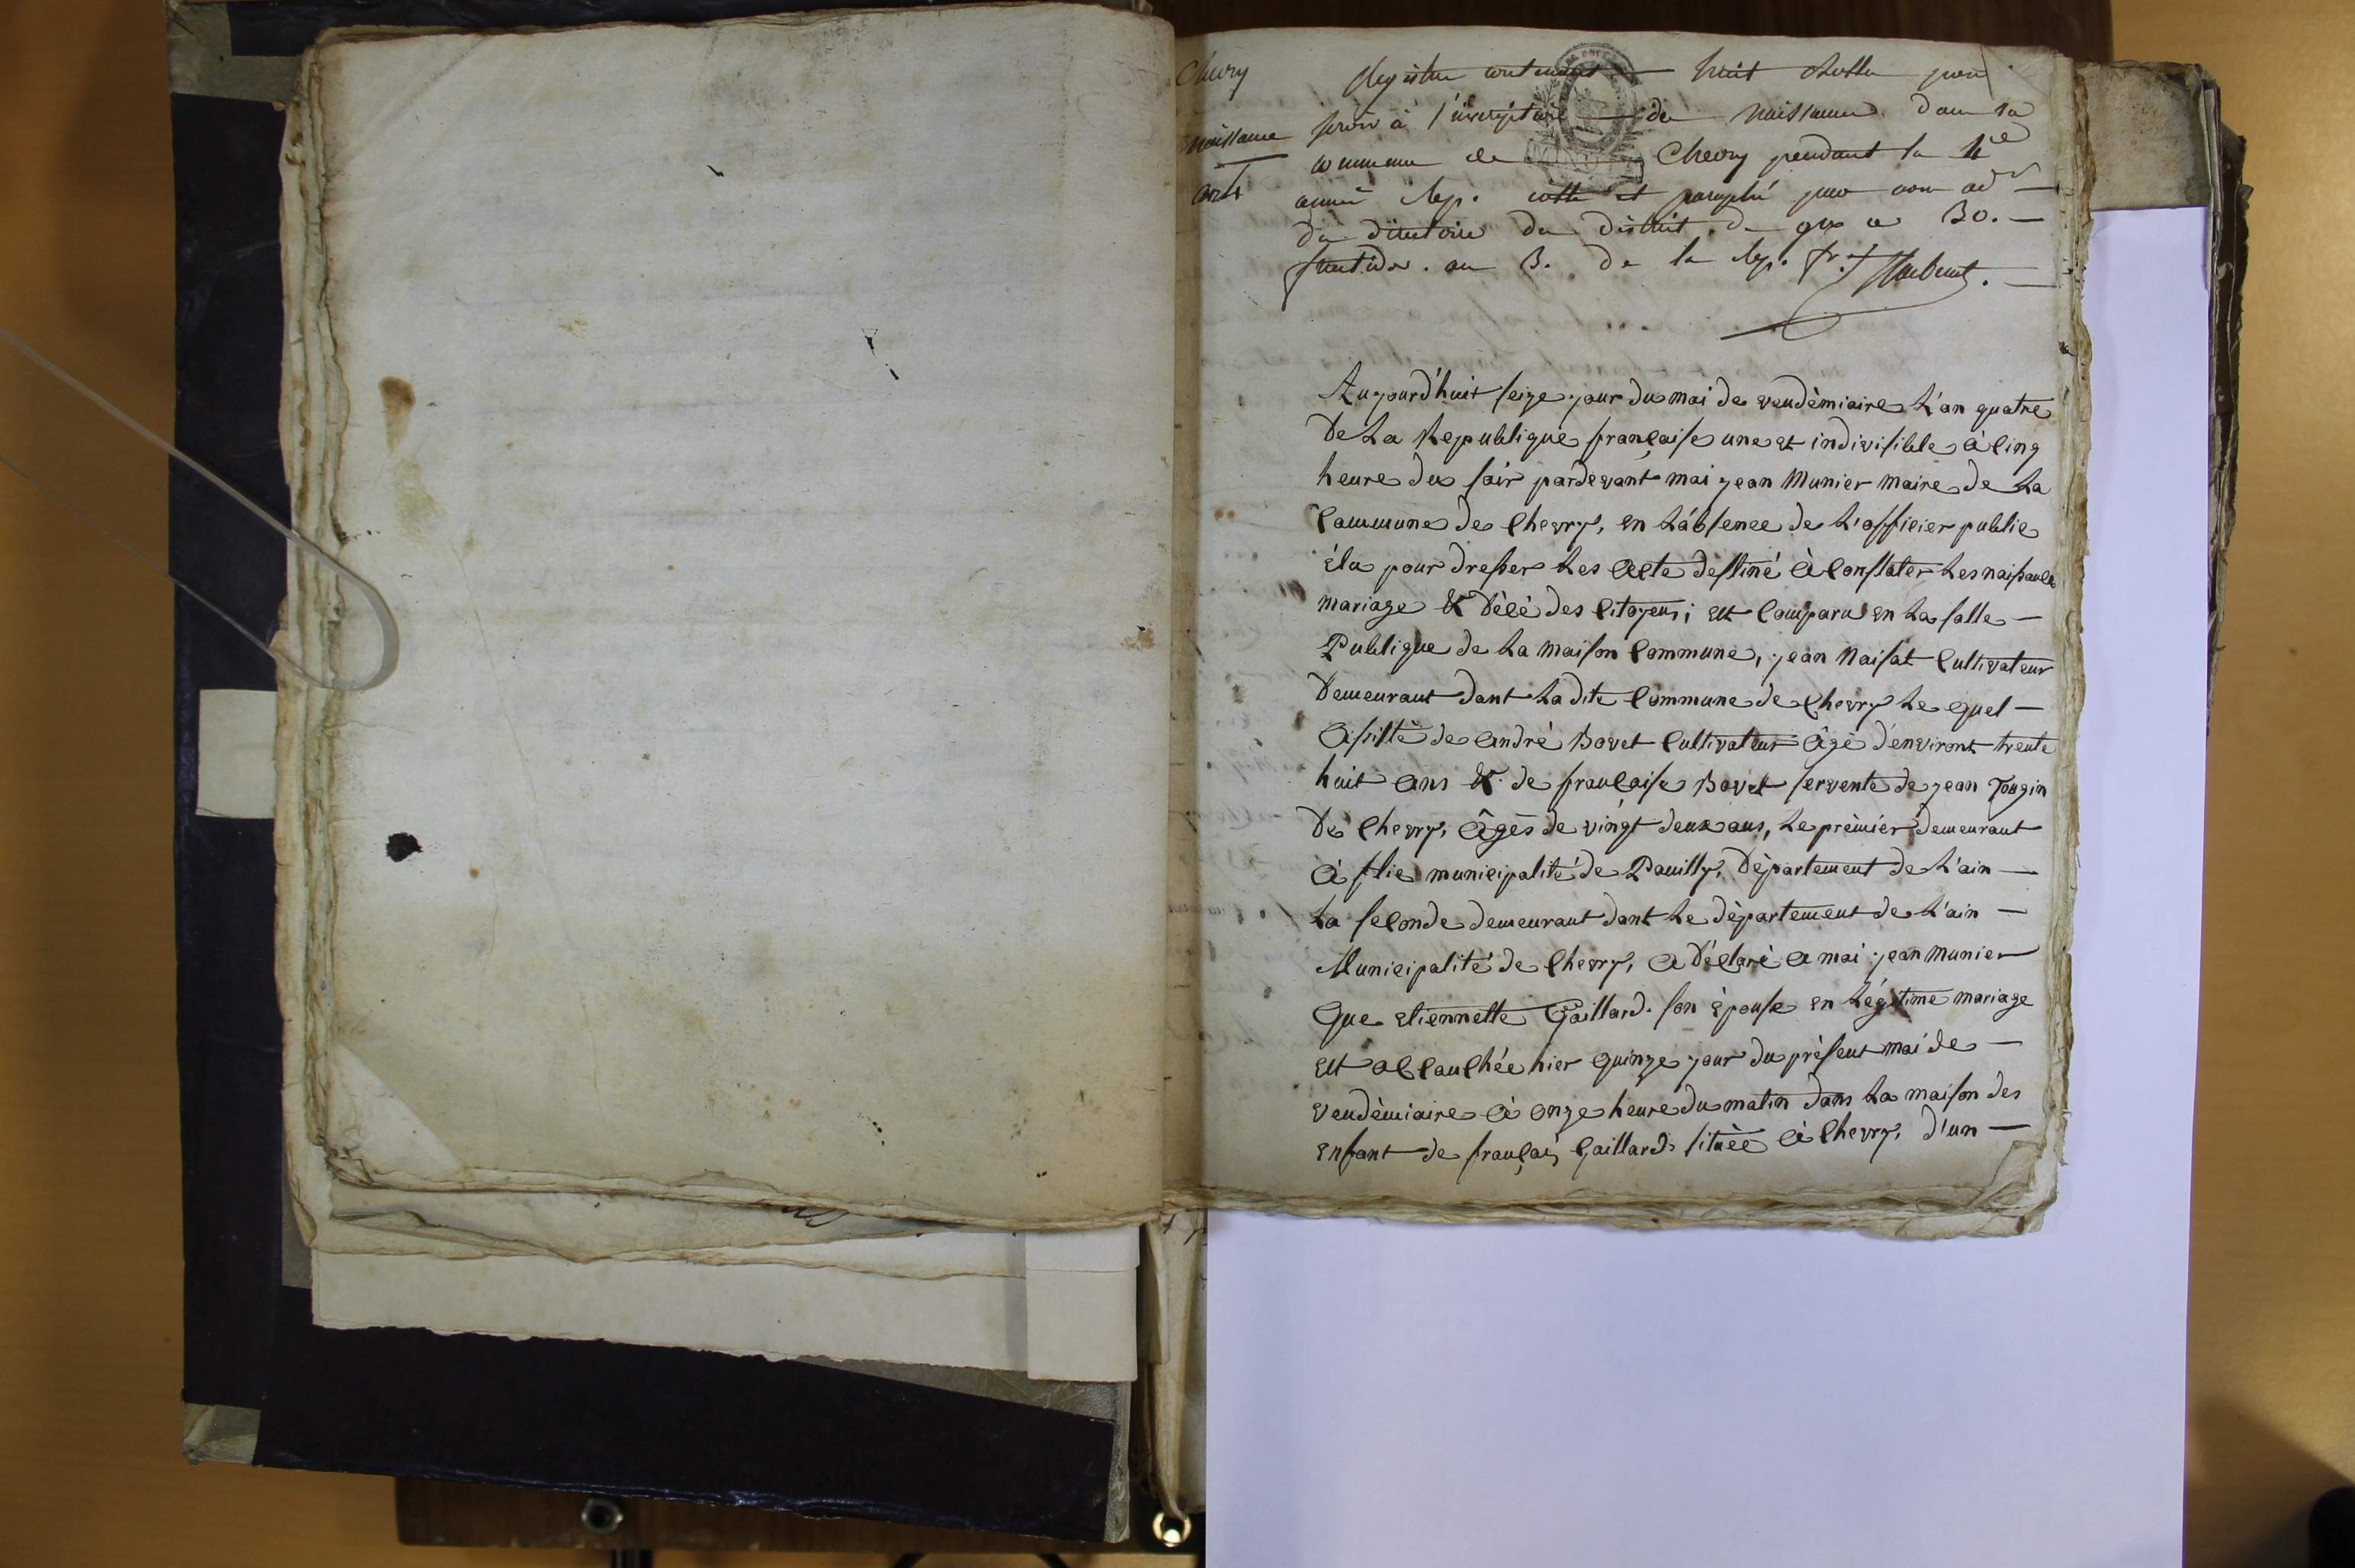 Chevry
Naissance
an 4
Registre contenant huit
servir à l'inscription de Naissance dans la
commune de Chevry pendant la 4e
année Rep. cotté et paraphé par nous adr
du directoire du district de gex ce 30.
fructidor. an 3. de la Rep. fr.
MINUTE
Aujourd'huit seize jour du moi de vendèmiaire L'an quatre
De La Republique française une et indivisible à Cinq
heure du soir pardevant moi jean Munier maire de La
Commune de Chevry, en L'absence de L'officier public
élu pour dresser Les acte destiné à Constater Les naissance
mariage & Décé des Citoyens; est Comparu en La salle
Publique de La maison Commune, jean Naisat Cultivateur
Demeurant dant La dite Commune de Chevry Le quel
assisté de andré Bovet Cultivateur âgé d'environt trente
huit ans & de française Bovet servente de jean Tougin
De Chevry, âgés de vingt deux ans, Le prèmier demeurant
à flie municipalité de Pouilly, Département de L'ain
La seconde demeurant dant Le département de L'ain
Municipalité de Chevry, a Déclaré a moi jean Munier
Que etiennette Gaillard son épouse en Légitime mariage
est accouchée hier quinze jour du présent moi de
vendèmiaire à onze heure du matin dans La maison des
enfant de françois Gaillard située à Chevry, d'un